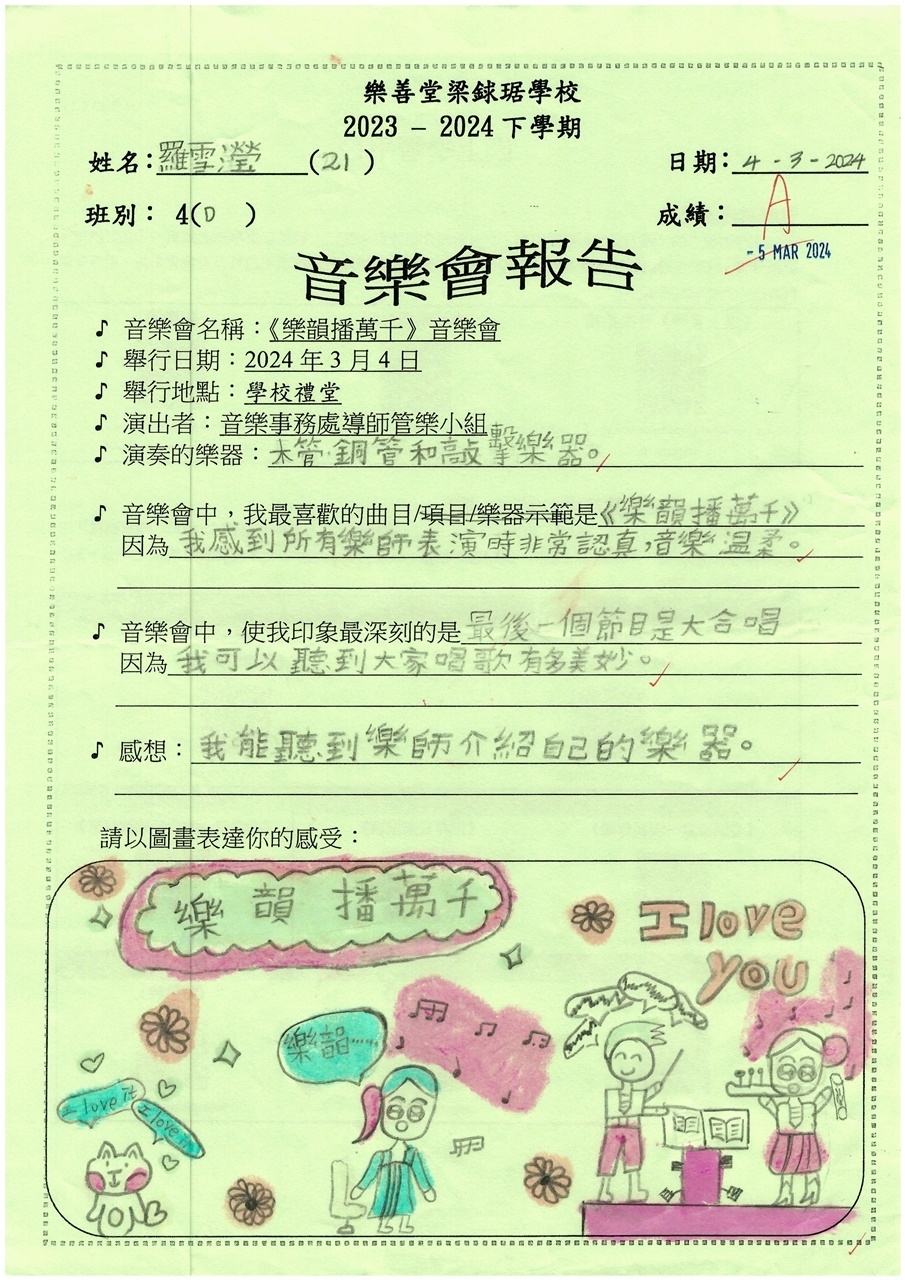 樂善堂梁銶琚學校
2023 - 2024 下學期
姓名：羅雪瀅 (21)
日期：4-3-2024
班別： 4(D )
成績： A
-5 MAR 2024
音樂會報告
♪ 音樂會名稱：《樂韻播萬千》音樂會
♪ 舉行日期：2024 年 3 月 4 日
♪ 舉行地點：學校禮堂
♪ 演出者：音樂事務處導師管樂小組
♪ 演奏的樂器：木管、銅管和敲擊樂器。
♪ 音樂會中，我最喜歡的曲目/項目/樂器示範是《樂韻播萬千》
因為 我感到所有樂師表演時非常認真，音樂溫柔。
♪ 音樂會中，使我印象最深刻的是 最後一個節目是大合唱
因為 我可以聽到大家唱歌有多美妙。
♪ 感想： 我能聽到樂師介紹自己的樂器。
請以圖畫表達你的感受：
樂韻播萬千
I love
you
樂韻……
I love it
I love it